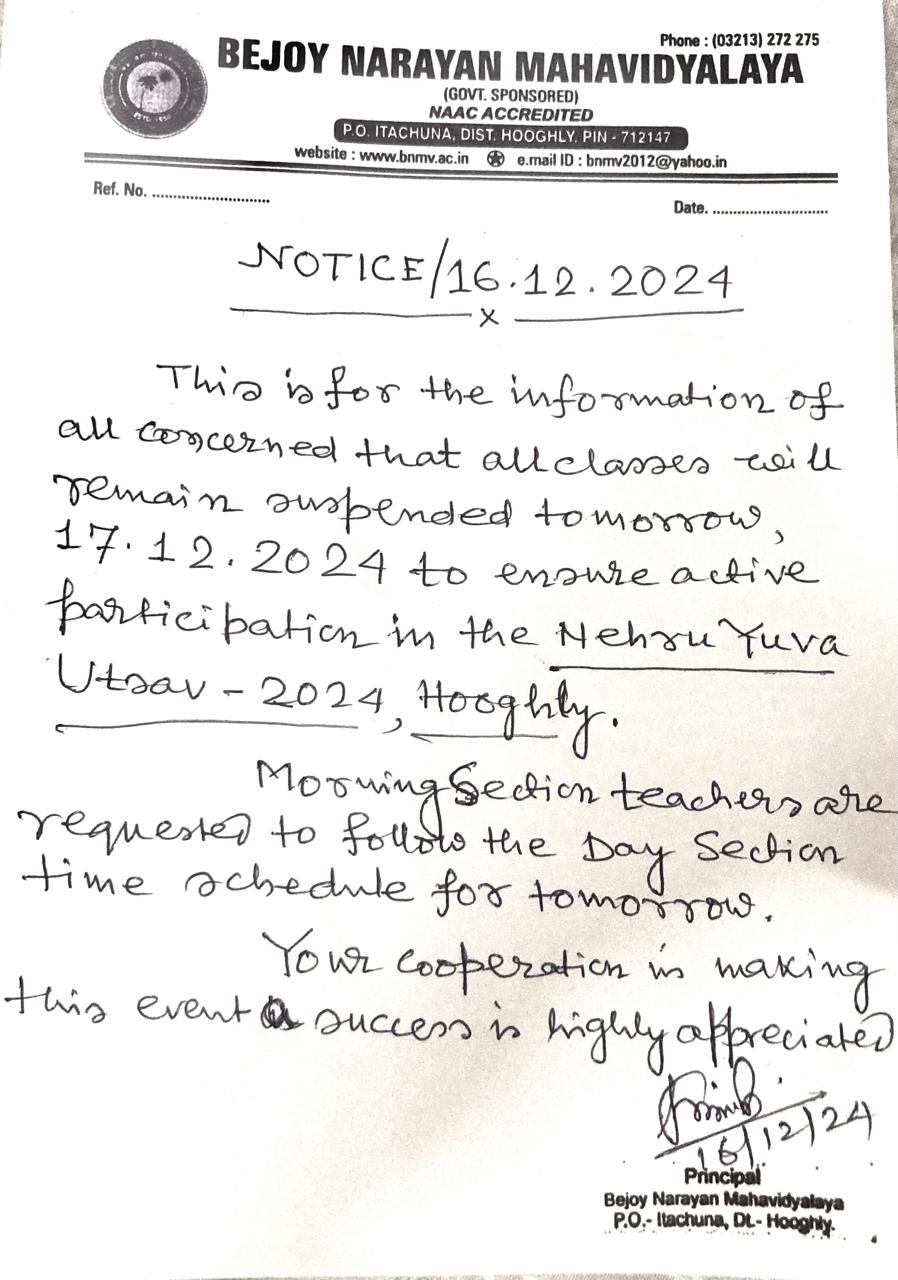 Phone : (03213) 272 275
BEJOY NARAYAN MAHAVIDYALAYA
(GOVT. SPONSORED)
NAAC ACCREDITED
P.O. ITACHUNA, DIST. HOOGHLY, PIN - 712147
website : www.bnmv.ac.in e.mail ID : bnmv2012@yahoo.in
Ref. No. ..............................
Date. ..............................
NOTICE/16.12.2024
x
This is for the information of
all concerned that all classes will
remain suspended tomorrow,
17.12.2024 to ensure active
participation in the Nehru Yuva
Utsav - 2024, Hooghly.
Morning Section teachers are
requested to follow the Day Section
time schedule for tomorrow.
Your cooperation in making
this event a success is highly appreciated
16/12/24
Principal
Bejoy Narayan Mahavidyalaya
P.O.- Itachuna, Dt.- Hooghly.